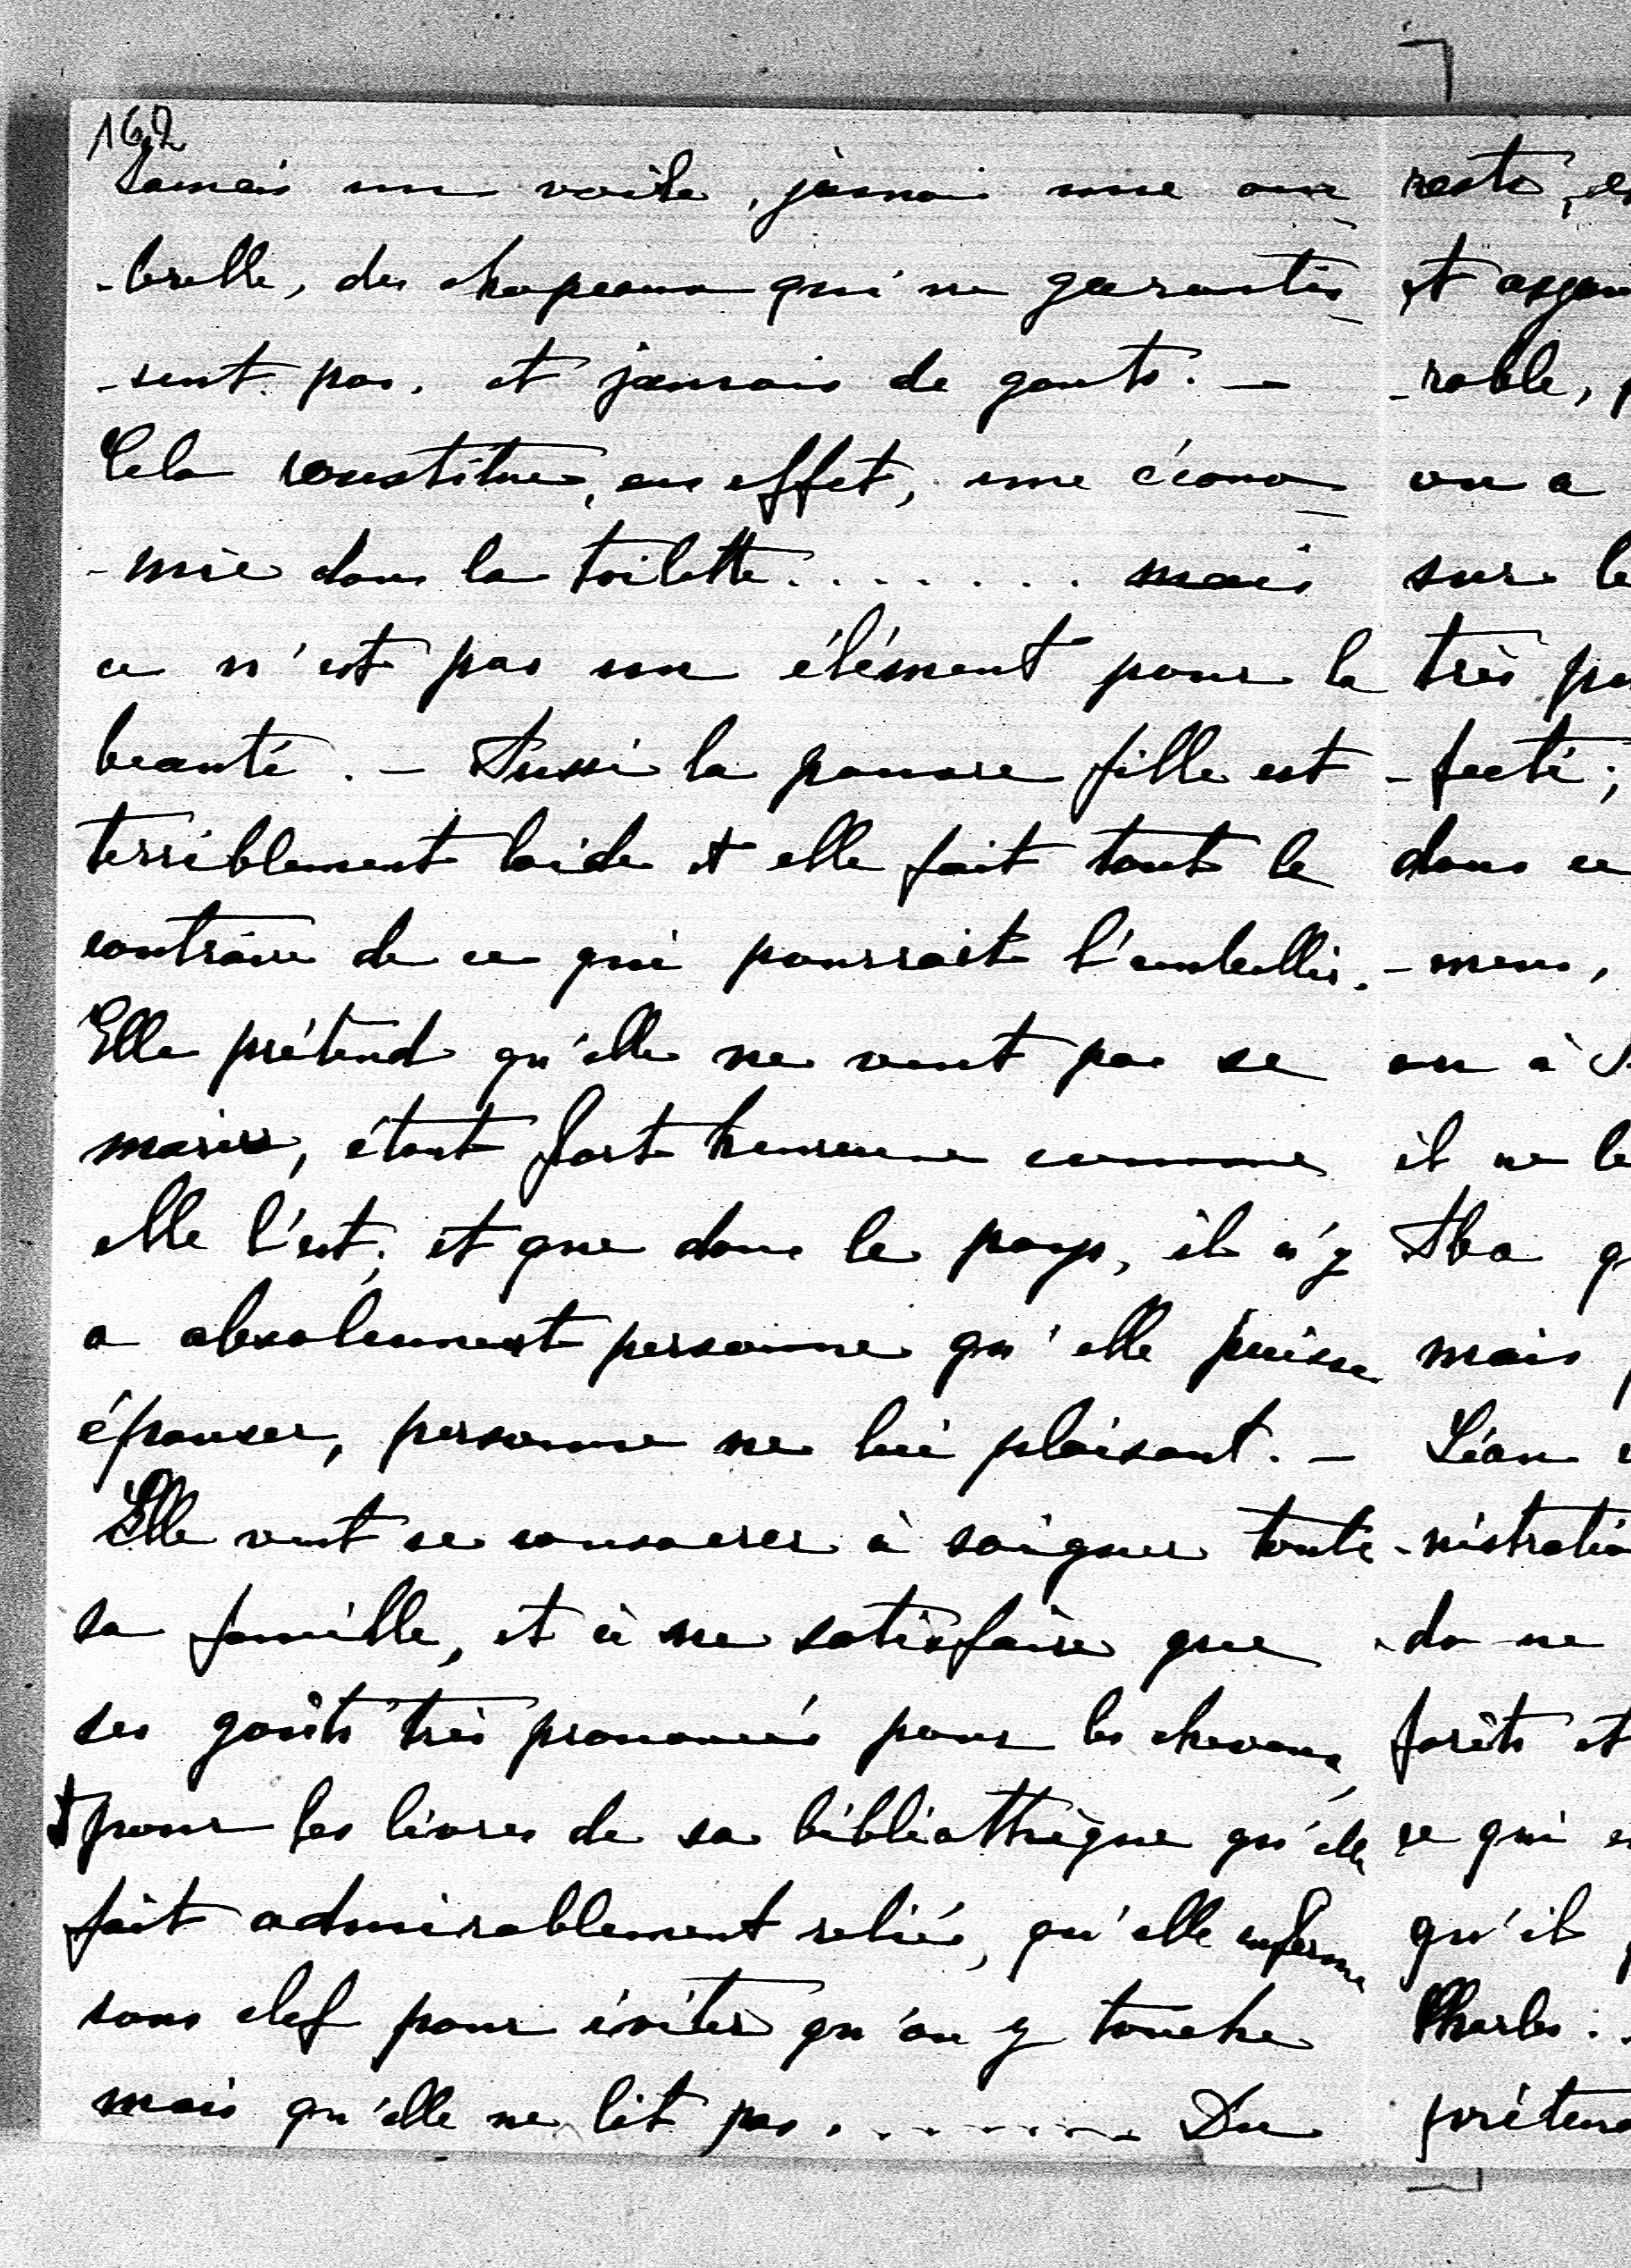 162
Jamais un voile, jamais une om
-brelle, des chapeaux qui ne garantis
-sent pas, et jamais de gants. —
Cela constitue, en effet, une écono
-mie dans la toilette. . . . . . . . mais
ce n'est pas un élément pour la
beauté. — Aussi la pauvre fille est
terriblement laide et elle fait tout le
contraire de ce qui pourrait l'embellir.
Elle prétend qu'elle ne veut pas se
marier, étant fort heureuse comme
elle l'est; et que dans le pays, il n'y
a absolument personne qu'elle puisse
épouser, personne ne lui plaisant. —
Elle veut se consacrer à soigner toute
sa famille, et à ne satisfaire que
ses goûts très prononcés pour les chevaux,
& pour les livres de sa bibliothèque qu'elle
fait admirablement reliés, qu'elle enferme
sous clef pour éviter qu'on y touche
mais qu'elle ne lit pas. . . . . . . . Du
reste,
et
-rable,
on a
sur le
très
-fecté;
dans ce
-mens,
on à
il ne le
Aba
mais
Léon
-nistration
-da ne
forêts et
ce qui
qu'il
Charles.